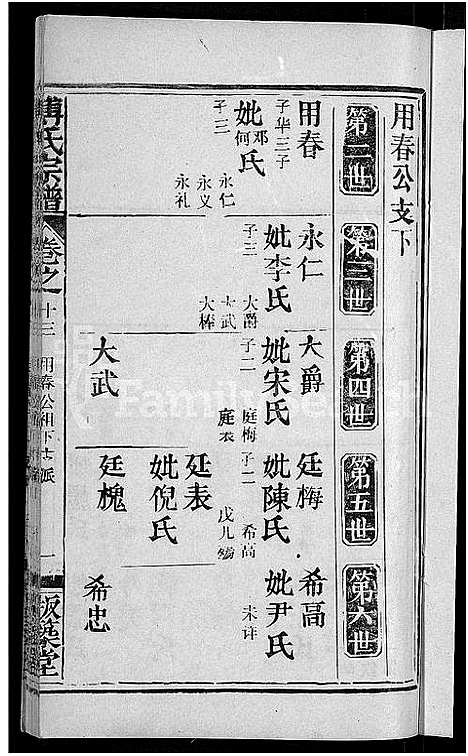 用春公支下
第二世
第三世
第四世
第五世
第六世
用春
子华三子
妣邓何氏
子三
永仁
永义
永礼
永仁
妣李氏
子三
大爵
大武
大棒
大爵
妣宋氏
子二
庭梅
庭表
大武
廷梅
妣陳氏
子二
希高
廷表
妣倪氏
廷槐
希高
妣尹氏
未详
希忠
傅氏宗譜
卷之十三
用春公祖下支派
一
版築堂